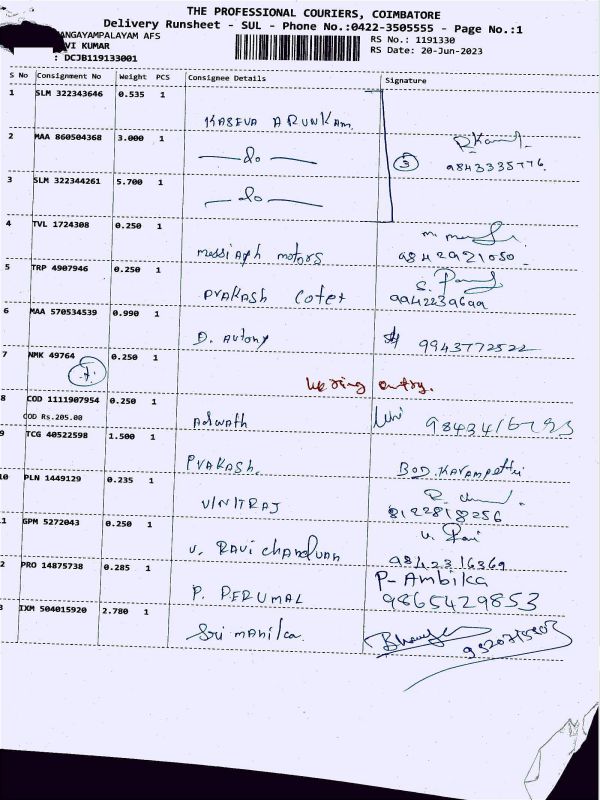 THE PROFESSIONAL COURIERS, COIMBATORE
Delivery Runsheet - SUL - Phone No.:0422-3505555 - Page No.:1
ANGAYAMPALAYAM AFS
RS No.: 1191330
VI KUMAR
RS Date: 20-Jun-2023
: DCJB119133001
S No Consignment No Weight PCS Consignee Details Signature
1 SLM 322343646 0.535 1
KASEVA ARUNKAM
2 MAA 860504368 3.000 1
do
3 9843335776
3 SLM 322344261 5.700 1
do
4 TVL 1724308 0.250 1
messiaph motors 9842921050
5 TRP 4907946 0.250 1
PRAKASH Coter 9942239699
6 MAA 570534539 0.990 1
D. Antony 9943772522
7 NMK 49764 0.250 1
entry.
8 COD 1111907954 0.250 1
COD Rs.205.00
Adwath
9 TCG 40522598 1.500 1
PRAKASH.
10 PLN 1449129 0.235 1
VINITRAJ 8122818256
1 GPM 5272043 0.250 1
V. RAVI chandran 9842316369
2 PRO 14875738 0.285 1
P- Ambika
P. PERUMAL 9865429853
3 IXM 504015920 2.780 1
Sri manika.